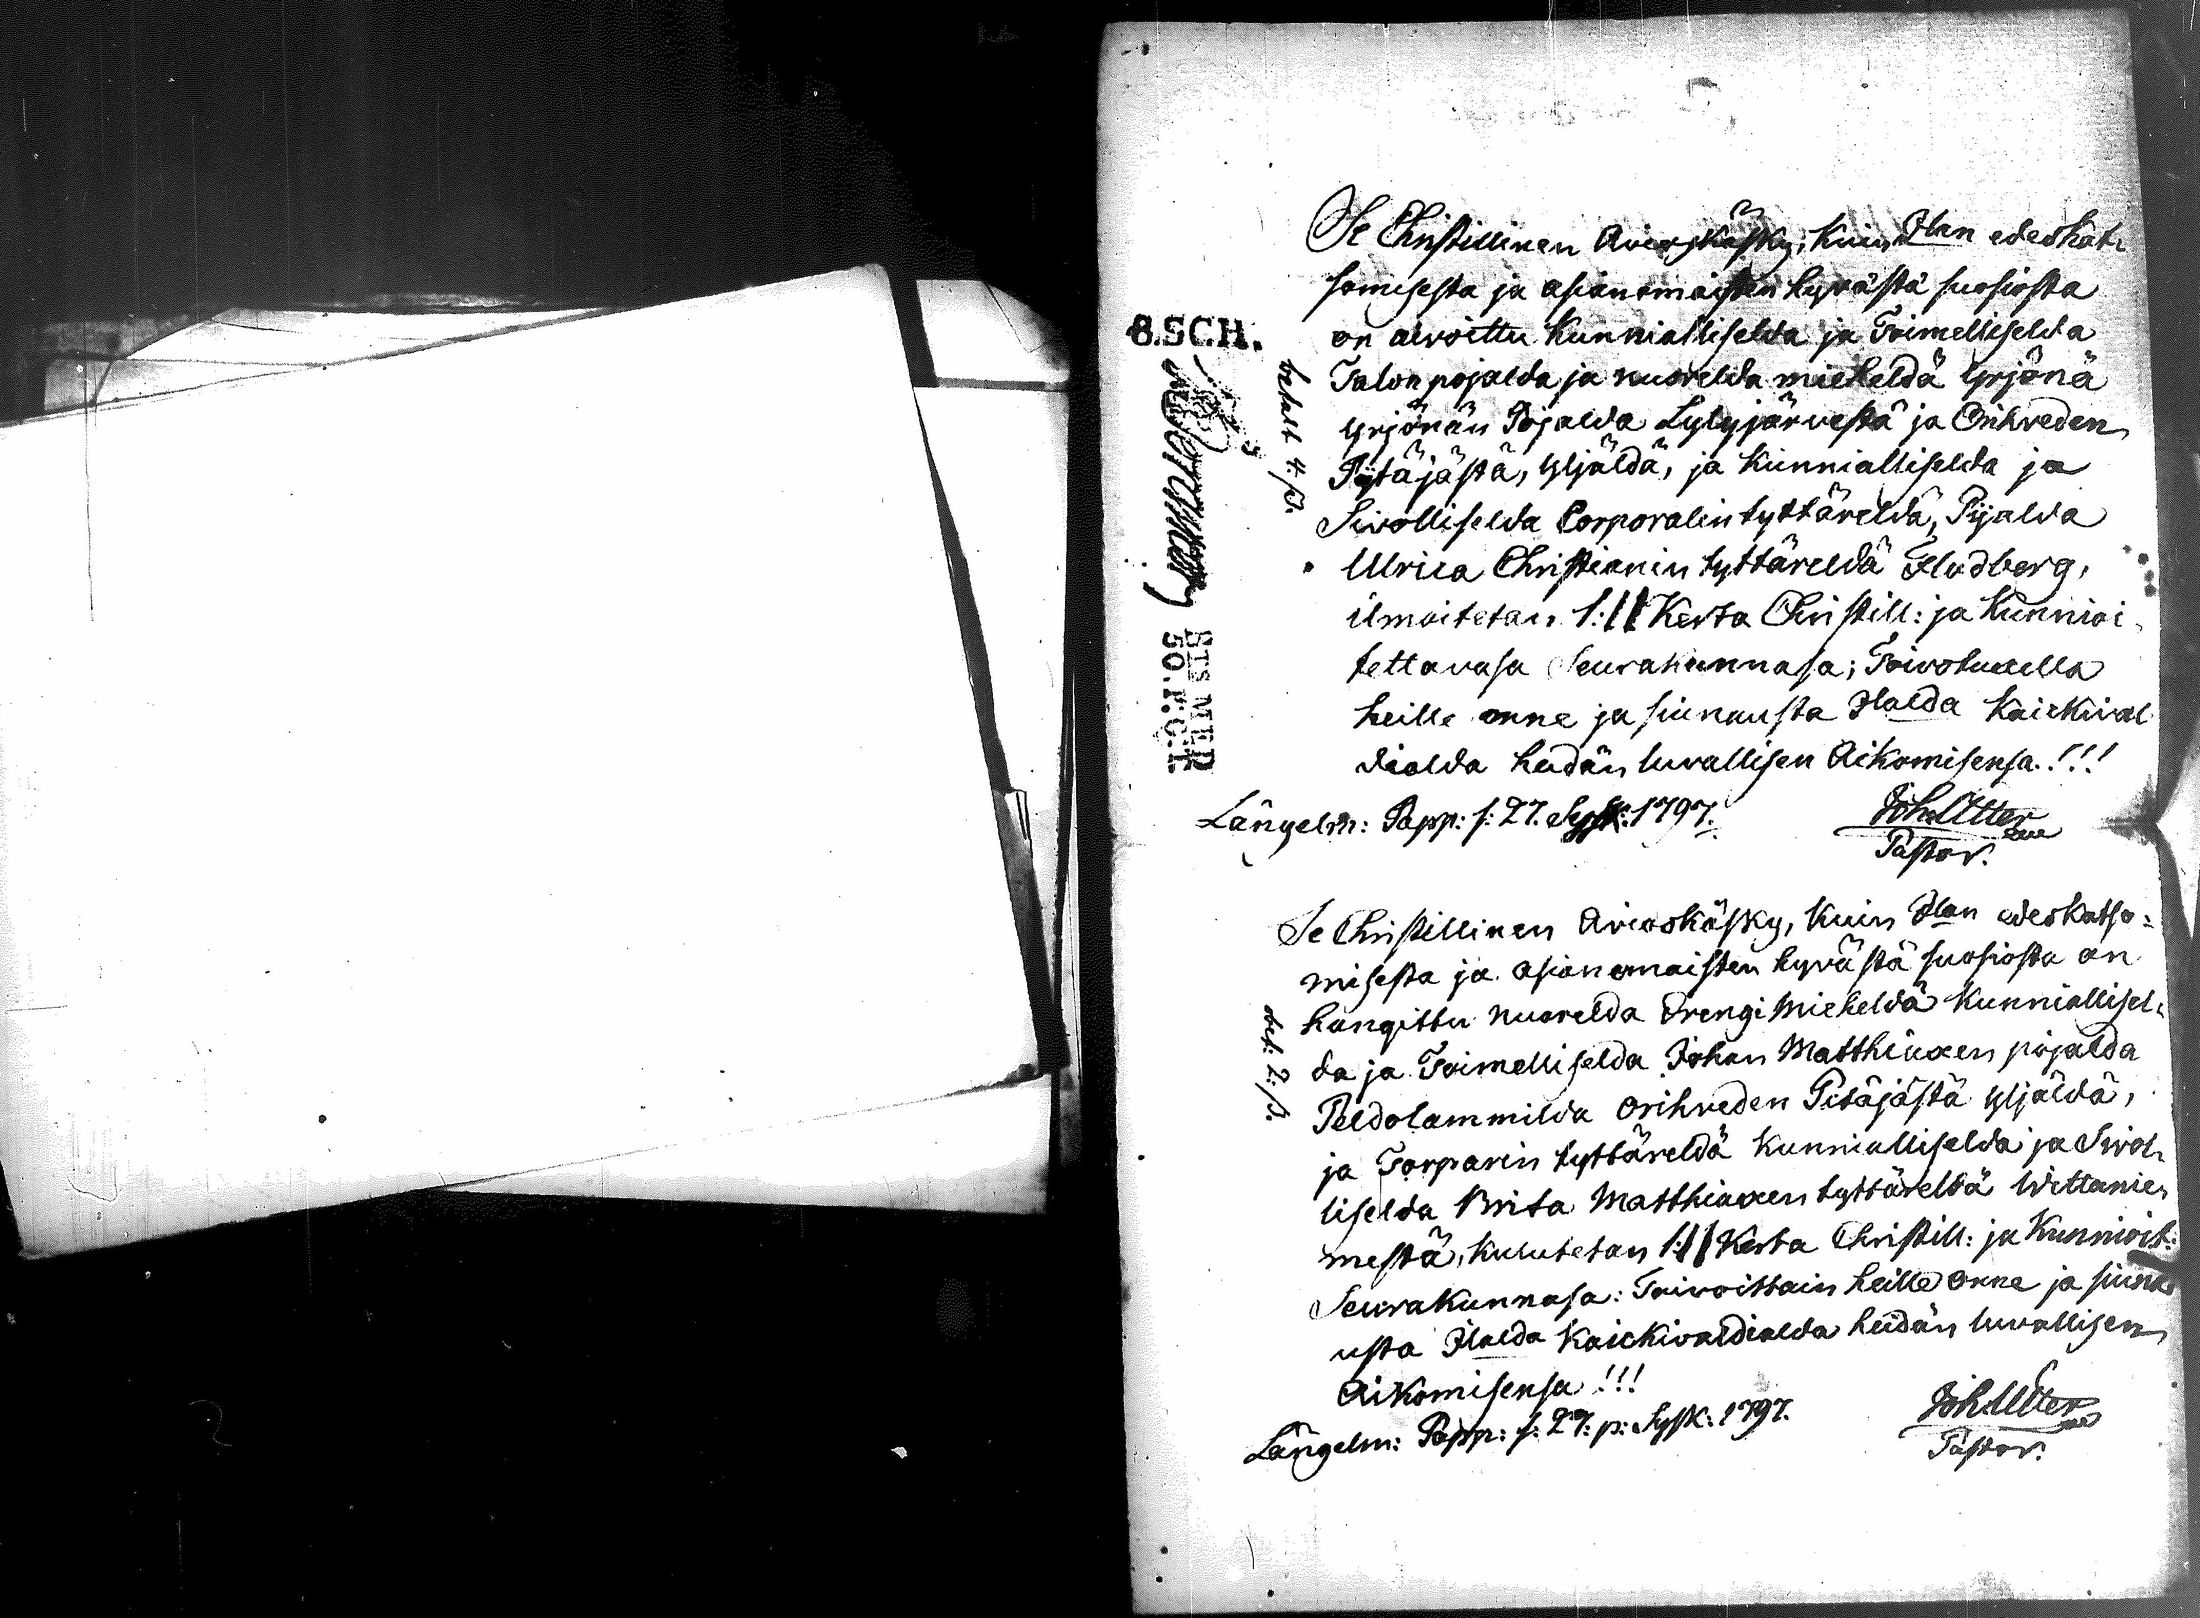 8.SCH.
STS MED
50.P.C.T.
betalt 4. β.
Se Christillinen Avioskäsky, kuin Jlan edeskat-
somisesta ja asianomaisten hyvästä suosiosta
on aivoittu Kunnialliselda ja Toimelliselda
Talonpojalda ja nuorelda mieheldä Yrjönä
Yrjönän Pojalda Lylyjärvestä ja Orihveden
Pitäjästä, Yljäldä, ja kunnialliselda ja
Sivolliselda Corporalin tyttäreldä, Pijalda
Ulrica Christianin tyttäreldä Fludberg,
ilmoitetan 1:// Kerta Christill: ja Kunnioi-
tettavasa Seurakunnasa; Toivotuxella
heille onne ja siunausta Jlalda kaickival
dialda heidän luvallisen Aikomisensa.!!!
Längelm: Papp: s: 27. Sysk: 1797.
Joh. Utter
Pastor.
bet: 2. β.
Se Christillinen Avioskäsky, kuin Jlan edeskatso-
misesta ja asianomaisten hyvästä suosiosta on
hangittu nuorelda Drengi Mieheldä Kunniallisel-
da ja Toimelliselda Johan Matthiaxen pojalda
Peldolammilda Orihveden Pitäjästä Yljäldä,
ja Torparin tyttäreldä Kunnialliselda ja Sivol-
liselda Brita Matthiaxen tyttäreldä Wittanie-
mestä, kulutetan 1:// Kerta Christill: ja Kunnioit:
Seurakunnasa: Toivoittain heille onne ja siuna
usta Jlalda Kaickivaldialda heidän luvallisen
Aikomisensa !!!
Längelm: Papp: s: 27. p: Sysk: 1797.
Joh. Utter
Pastor.